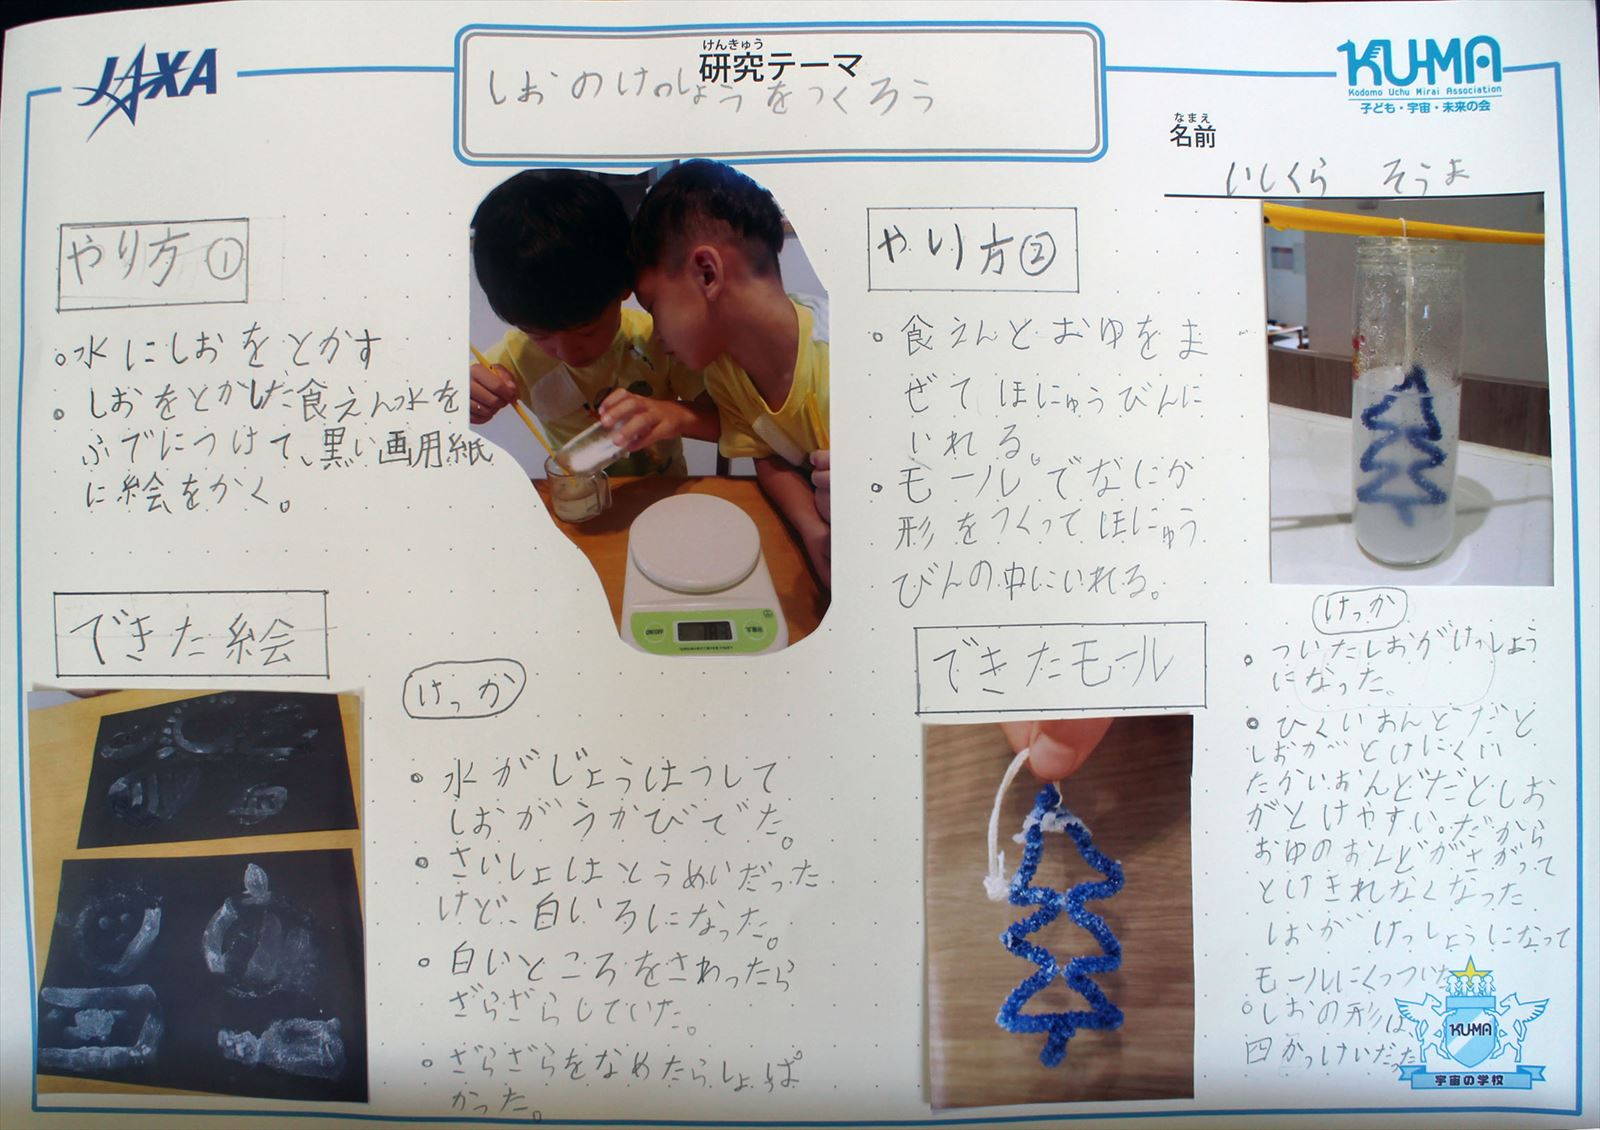 JAXA
けんきゅう
研究テーマ
しおのけっしょうをつくろう
KU-MA
Kodomo Uchu Mirai Association
子ども・宇宙・未来の会
なまえ
名前
いしくら そうま
やり方①
。水にしおをとかす
。しおをとかした食えん水を
ふでにつけて、黒い画用紙
に絵をかく。
できた絵
けっか
。水がじょうはつして
しおがうかびでた。
。さいしょはとうめいだった
けど、白いろになった。
。白いところをさわったら
ざらざらしていた。
。ざらざらをなめたらしょっぱ
かった。
やり方②
。食えんとおゆをま
ぜてほにゅうびんに
いれる。
。モールでなにか
形をつくってほにゅう
びんの中にいれる。
できたモール
けっか
。ついたしおがけっしょう
になった。
。ひくいおんどだと
しおがとけにくい
たかいおんどだとしお
がとけやすい。だから
おゆのおんどがさがって
とけきれなくなった
しおがけっしょうになって
モールにくっついた
。しおの形は、
四かっけいだった
KU-MA
宇宙の学校
ON/OFF